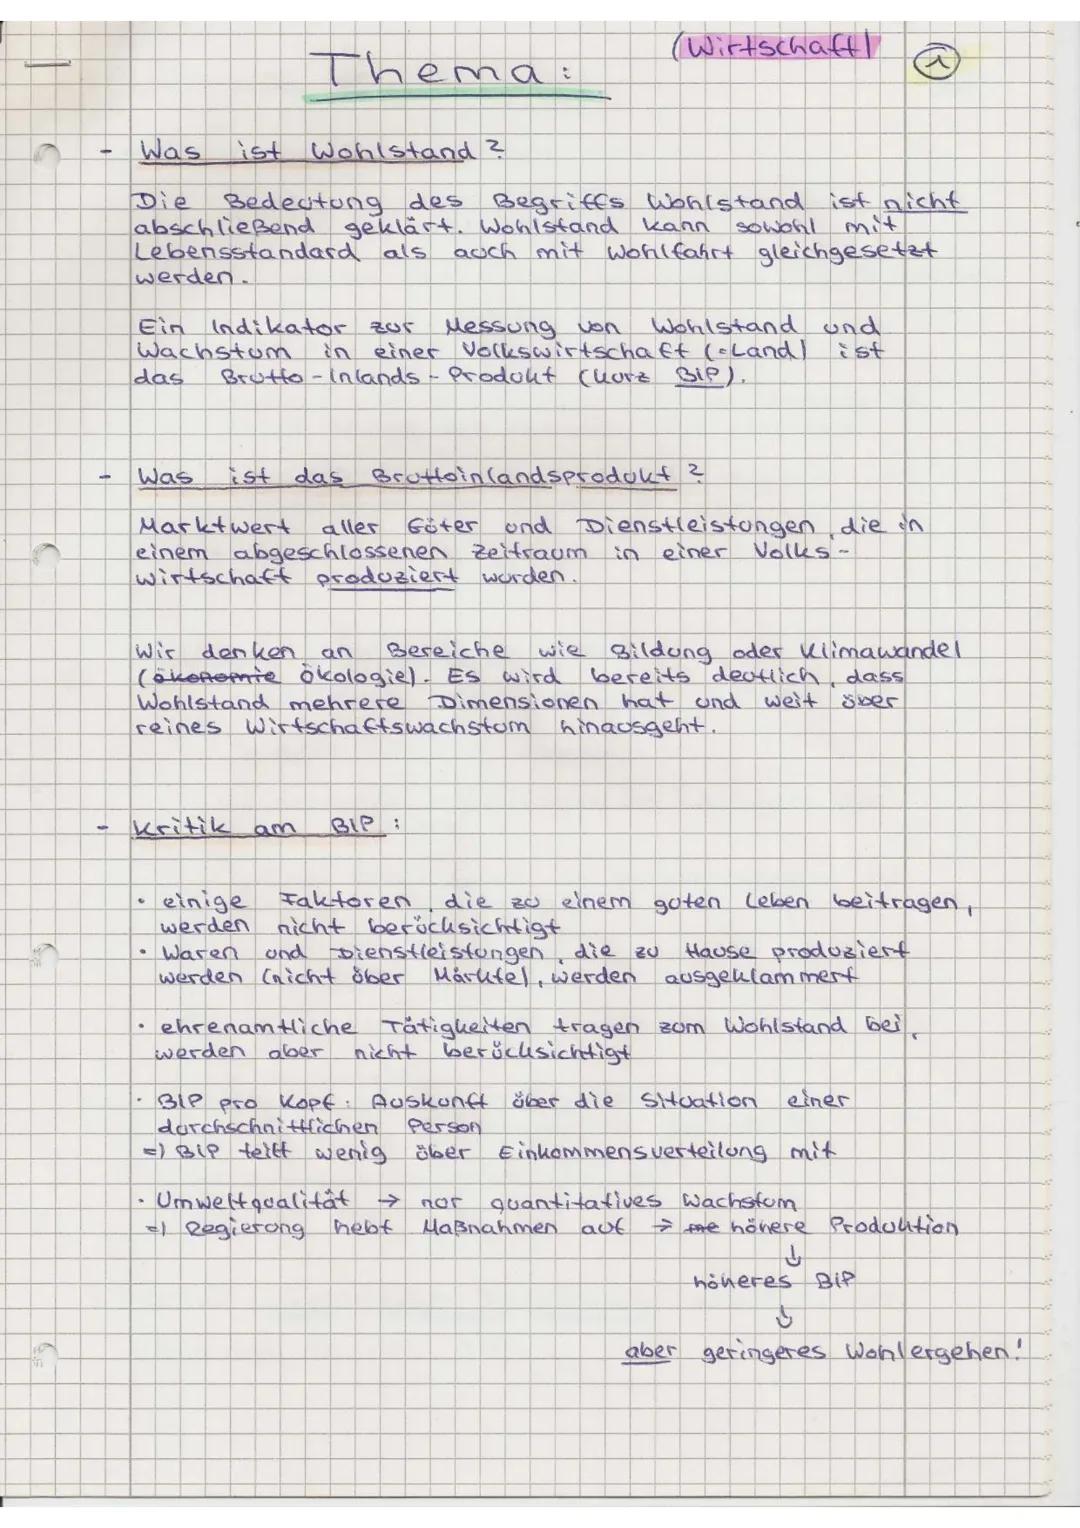 (Wirtschaft)
1
Thema:
- Was ist Wohlstand?
Die Bedeutung des Begriffs Wohlstand ist nicht
abschließend geklärt. Wohlstand kann sowohl mit
Lebensstandard als auch mit Wohlfahrt gleichgesetzt
werden.
Ein Indikator zur Messung von Wohlstand und
Wachstum in einer Volkswirtschaft (=Land) ist
das Brutto-Inlands-Produkt (kurz BIP).
- Was ist das Bruttoinlandsprodukt?
Marktwert aller Güter und Dienstleistungen, die in
einem abgeschlossenen Zeitraum in einer Volks-
wirtschaft produziert wurden.
Wir denken an Bereiche wie Bildung oder Klimawandel
(ökonomie Ökologie). Es wird bereits deutlich, dass
Wohlstand mehrere Dimensionen hat und weit über
reines Wirtschaftswachstum hinausgeht.
- Kritik am BIP:
· einige Faktoren, die zu einem guten Leben beitragen,
werden nicht berücksichtigt
· Waren und Dienstleistungen, die zu Hause produziert
werden (nicht über Märkte), werden ausgeklammert
· ehrenamtliche Tätigkeiten tragen zum Wohlstand bei,
werden aber nicht berücksichtigt
· BIP pro Kopf: Auskunft über die Situation einer
durchschnittlichen Person
=) BIP teilt wenig über Einkommensverteilung mit
· Umweltqualität → nur quantitatives Wachstum
=) Regierung hebt Maßnahmen auf → me höhere Produktion
↓
höheres BIP
↓
aber geringeres Wohlergehen!